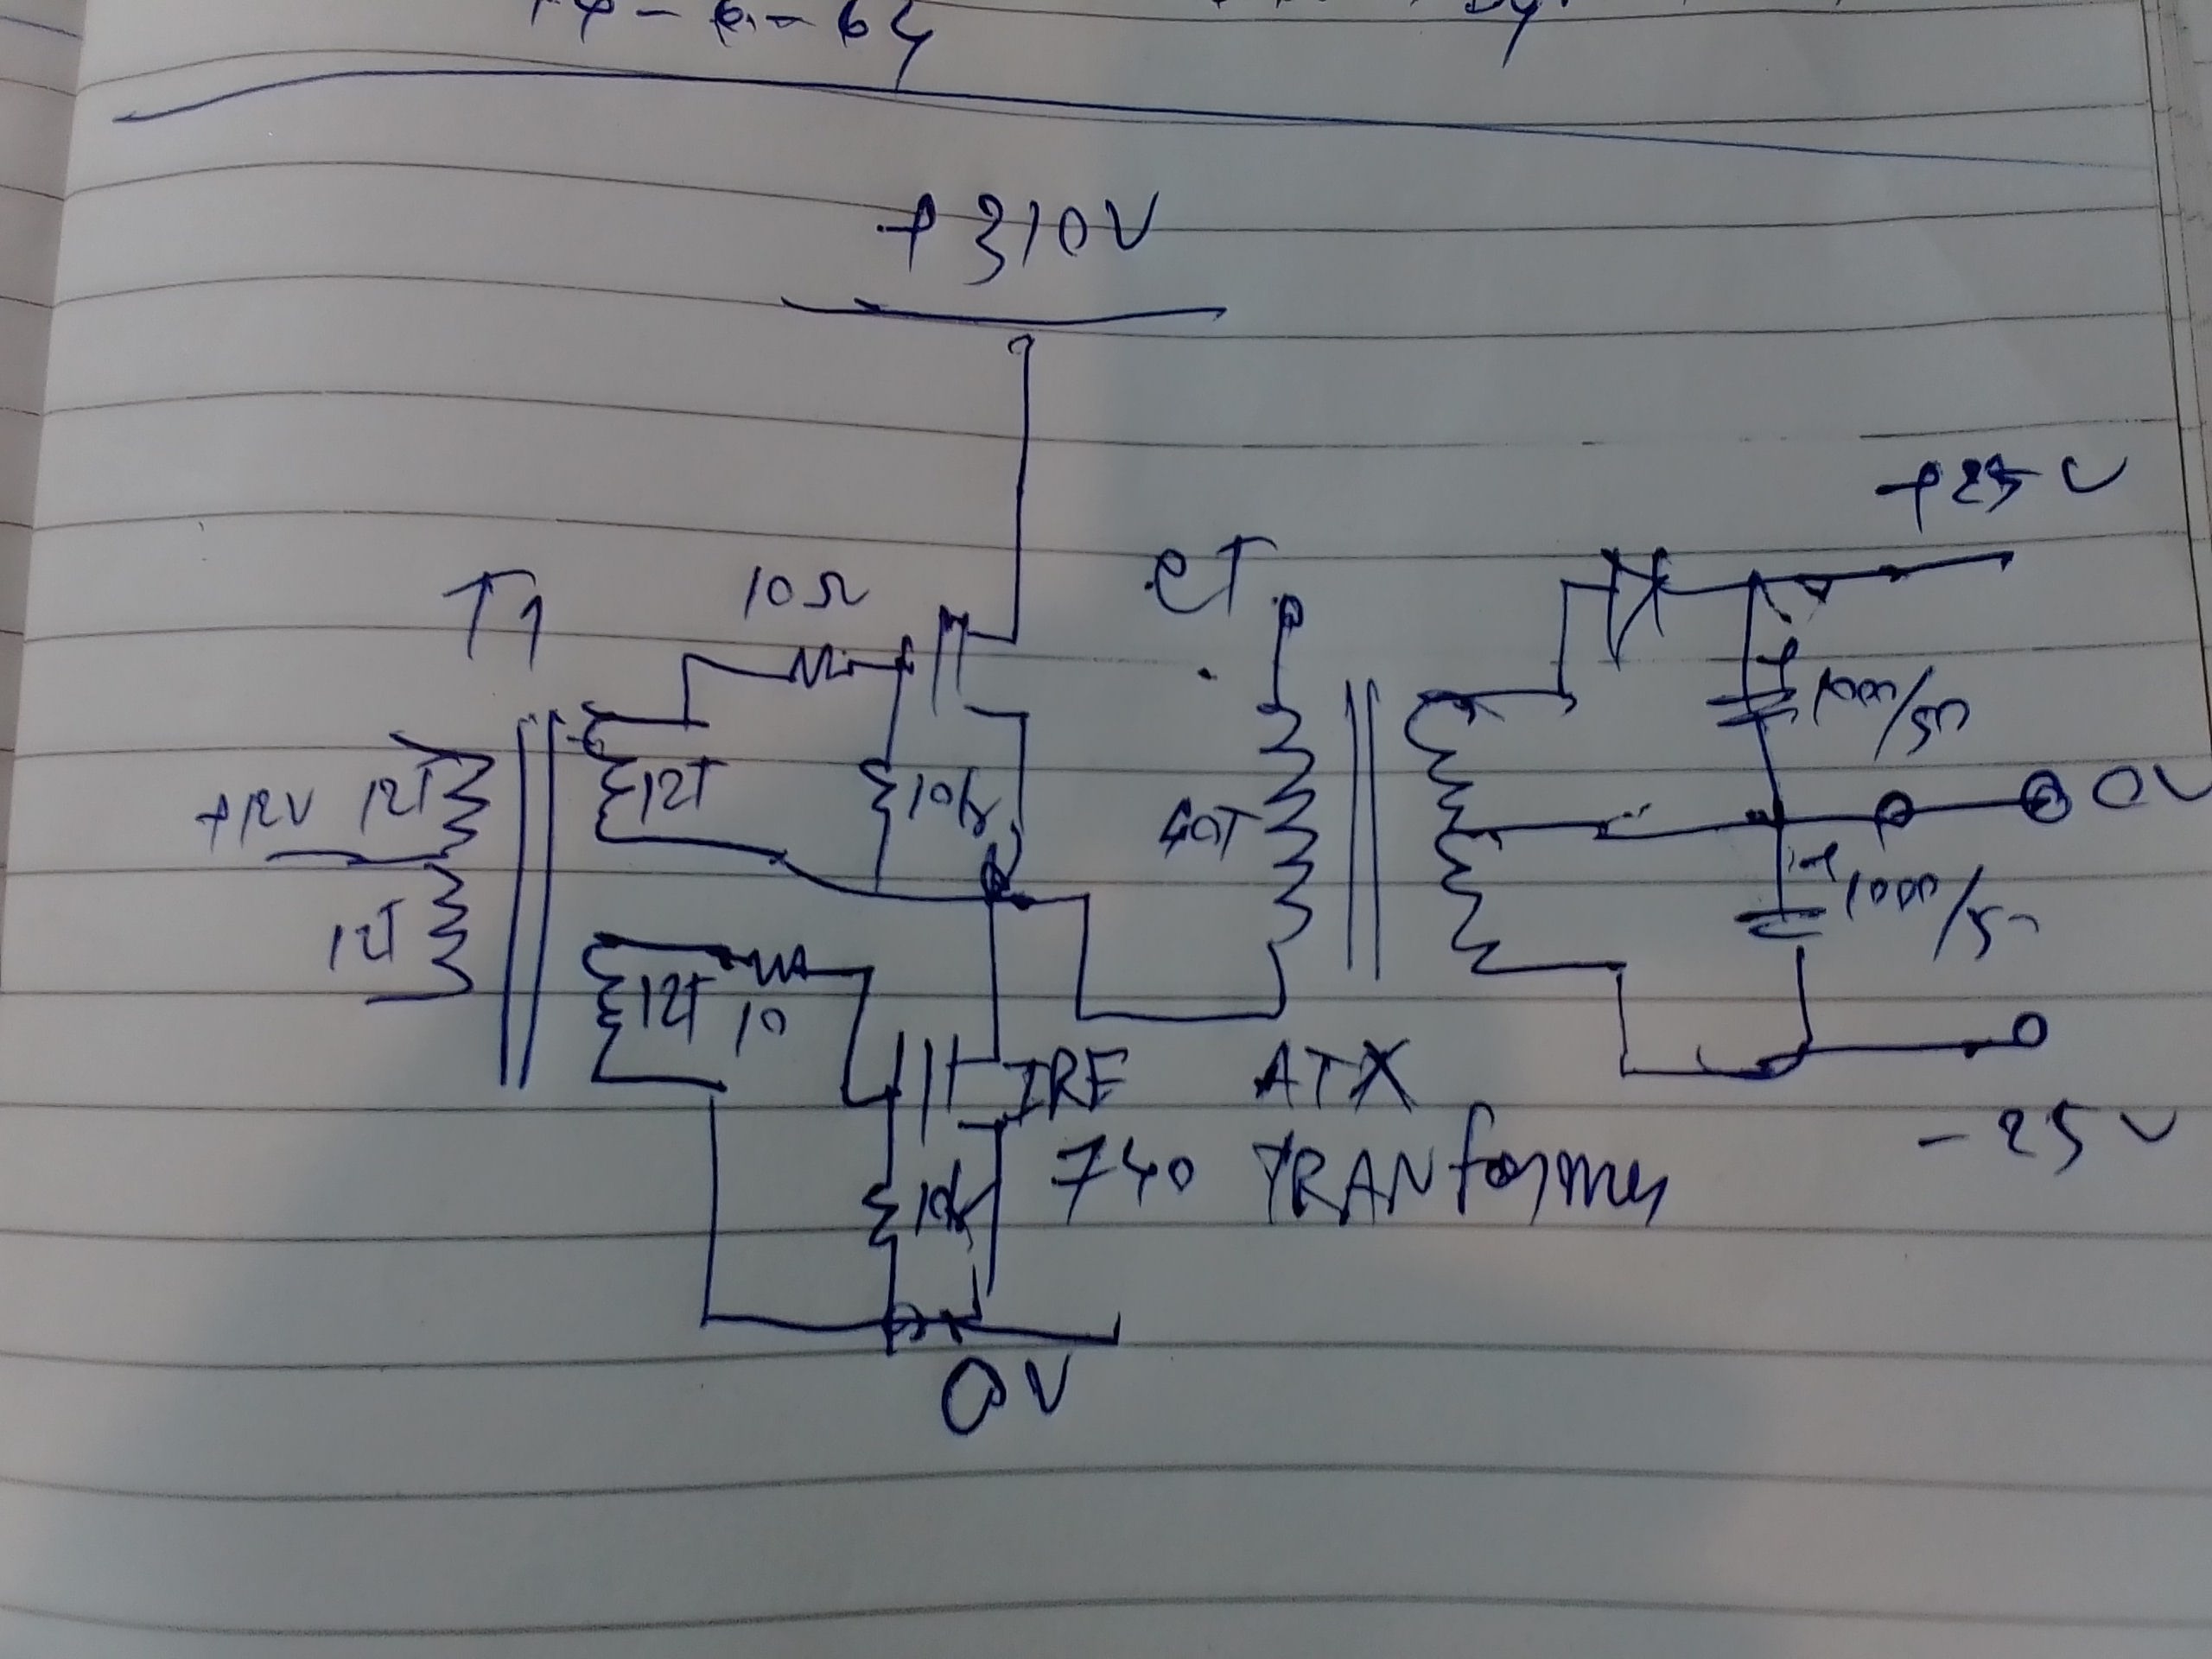 +310V
+25V
CT
10Ω
T1
1000/50
+12V 12T
12T
10k
40T
0V
12T
12T
10
1000/50
IRF
740
ATX
TRANformer
-25V
10k
0V